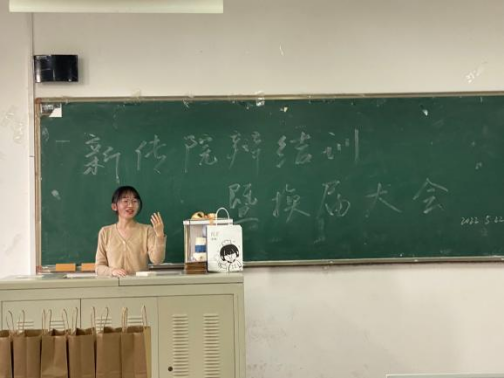 新传院辩结训
暨换届大会
2022.5.22